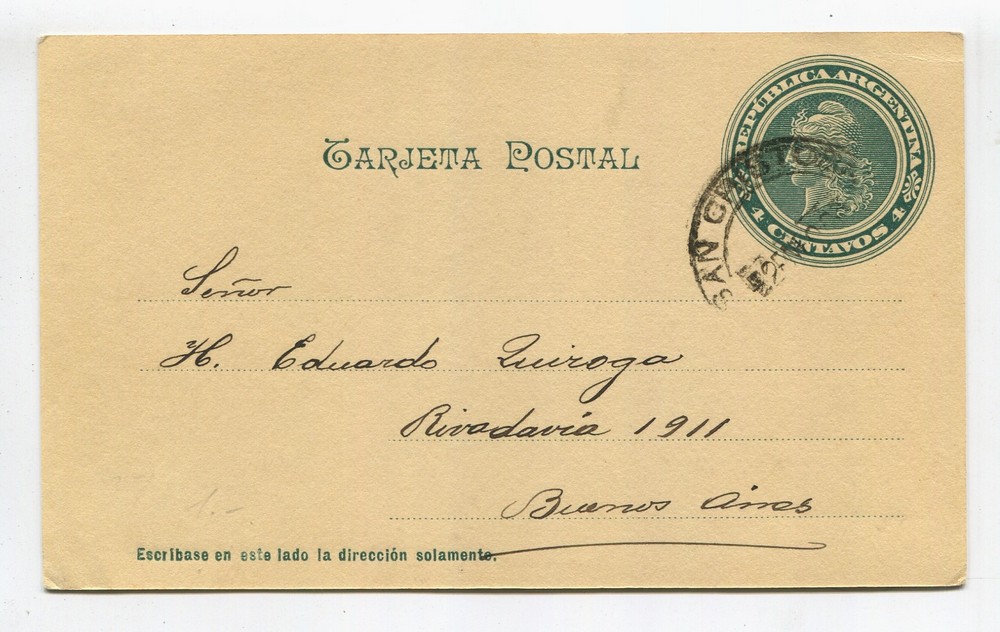 REPÚBLICA ARGENTINA
4 CENTAVOS 4
TARJETA POSTAL
SAN
Señor
H. Eduardo Quiroga
Rivadavia 1911
Buenos Aires
Escríbase en este lado la dirección solamente.
1.-